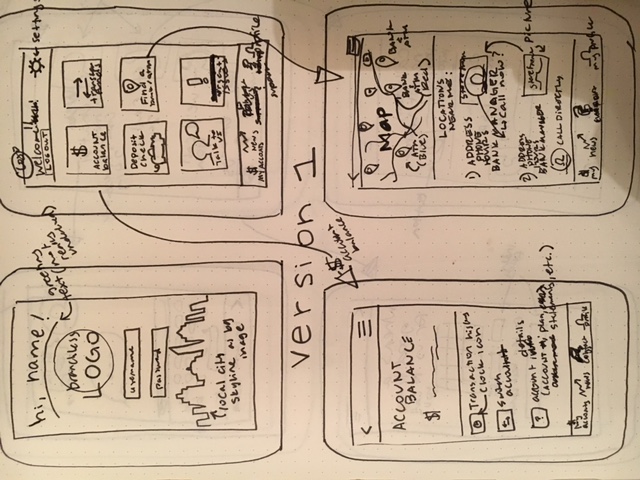 hi, name!
greeting
text (not
really
underlined)
branchless
LOGO
username
password
local city
skyline as bg
image
Logo
Welcome
LOGOUT
settings
$
ACCOUNT
balance
transfer
funds
DEPOSIT
CHECK
Find a
Talk to
us
!
urgent
issues
$
MY ACCOUNTS
NEWS
support
profile
version 1
$ account
balance
<
ACCOUNT
BALANCE
$
Transaction history
clock icon
Switch
accounts
?
account
details
(account plan,
statements, etc.)
$
my
accounts
news
contact
profile
Map
ATM
(BLUE)
BANK
&
ATM
(Red)
BANK
&
ATM
LOCATIONS
NEAR ME:
1) ADDRESS
PHONE
HOURS
BANK MANAGER
call now?
2) ADDRESS
PHONE
HOURS
BANK MANAGER
storefront picture
CALL DIRECTLY
$
my
news
support
my profile